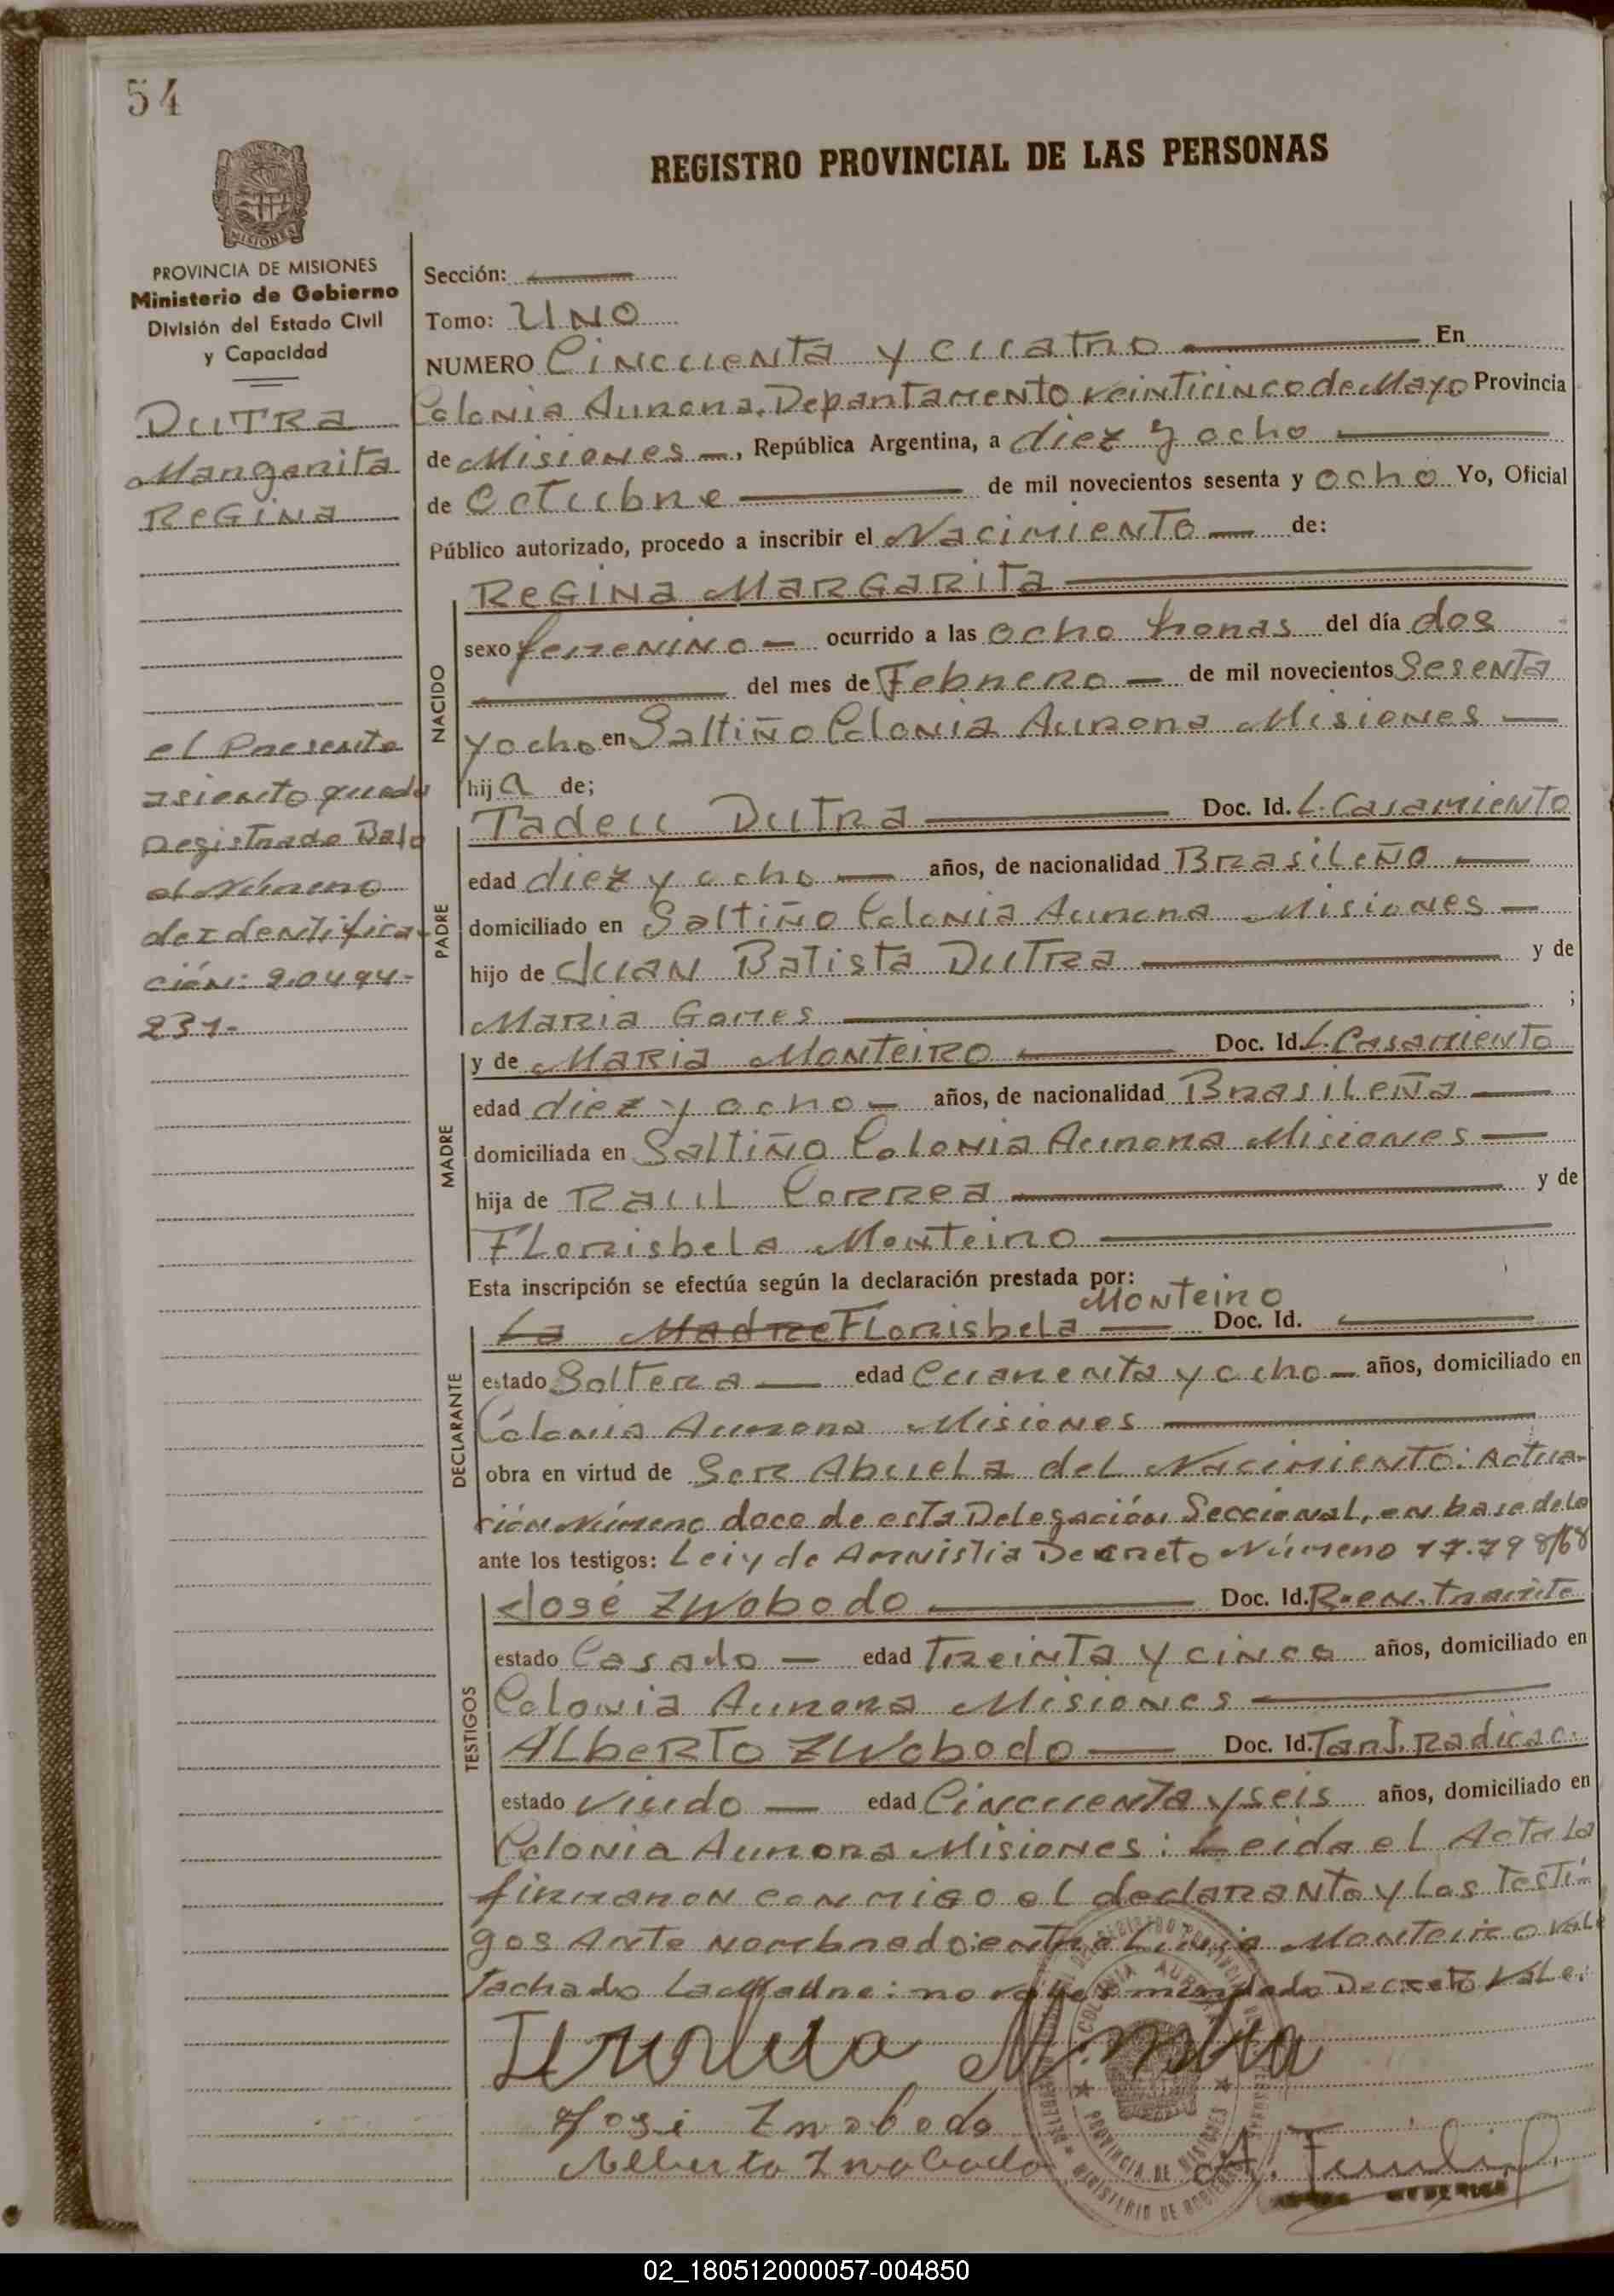 54
REGISTRO PROVINCIAL DE LAS PERSONAS
MISIONES
PROVINCIA DE MISIONES
Ministerio de Gobierno
División del Estado Civil
y Capacidad
DUTRA
Margarita
REGINA
el Presente
asiento queda
registrado Bajo
el Número
de Identifica-
ción: 20.494-
231-
Sección:
Tomo: UNO
NUMERO Cincuenta y cuatro En
Colonia Aurora. Departamento veinticinco de Mayo Provincia
de Misiones, República Argentina, a diez y ocho
de Octubre de mil novecientos sesenta y ocho Yo, Oficial
Público autorizado, procedo a inscribir el Nacimiento de:
NACIDO
REGINA MARGARITA
sexo femenino ocurrido a las ocho horas del día dos
del mes de Febrero de mil novecientos Sesenta
y ocho en Saltiño Colonia Aurora Misiones
hija de;
PADRE
Tadeu Dutra Doc. Id. L. Casamiento
edad diez y ocho años, de nacionalidad Brasileño
domiciliado en Saltiño Colonia Aurora Misiones
hijo de Juan Batista Dutra y de
Maria Gomes ;
MADRE
y de Maria Monteiro Doc. Id. L. Casamiento
edad diez y ocho años, de nacionalidad Brasileña
domiciliada en Saltiño Colonia Aurora Misiones
hija de Raul Correa y de
Florisbela Monteiro
Esta inscripción se efectúa según la declaración prestada por:
DECLARANTE
Monteiro
La Madre Florisbela Doc. Id.
estado Soltera edad Cuarenta y ocho años, domiciliado en
Colonia Aurora Misiones
obra en virtud de Ser Abuela del Nacimiento: Actua-
ción Número doce de esta Delegación Seccional, en base de la
ante los testigos: Ley de Amnistia Decreto Número 17.798/68
TESTIGOS
José Zwobodo Doc. Id. R. en. tramite
estado Casado edad Treinta y cinco años, domiciliado en
Colonia Aurora Misiones
Alberto Zwobodo Doc. Id. Tarj. Radicac.
estado Viudo edad Cincuenta y seis años, domiciliado en
Colonia Aurora Misiones: Leida el Acta la
firmaron conmigo el declarante y los Testi-
gos Ante nombrado: entre Linia Monteiro Vale
Tachado La Madre: no vale enmendado Decreto Vale.
José Zwobodo
Alberto Zwobodo
COLONIA AURORA
PROVINCIA DE MISIONES
MINISTERIO DE GOBIERNO
02_180512000057-004850